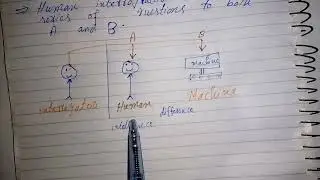 ⇒ Human interrogator
series of questions to both
A and B.
A B
Machine
interrogator Human Machine
difference